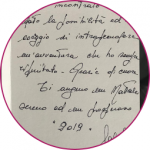 incontrato
dato la possibilità ed
coraggio di intraprendere
un'avventura che ho sempre
rifiutato. Grazie di cuore
Ti auguro un Natale
sereno ed un
"2019".